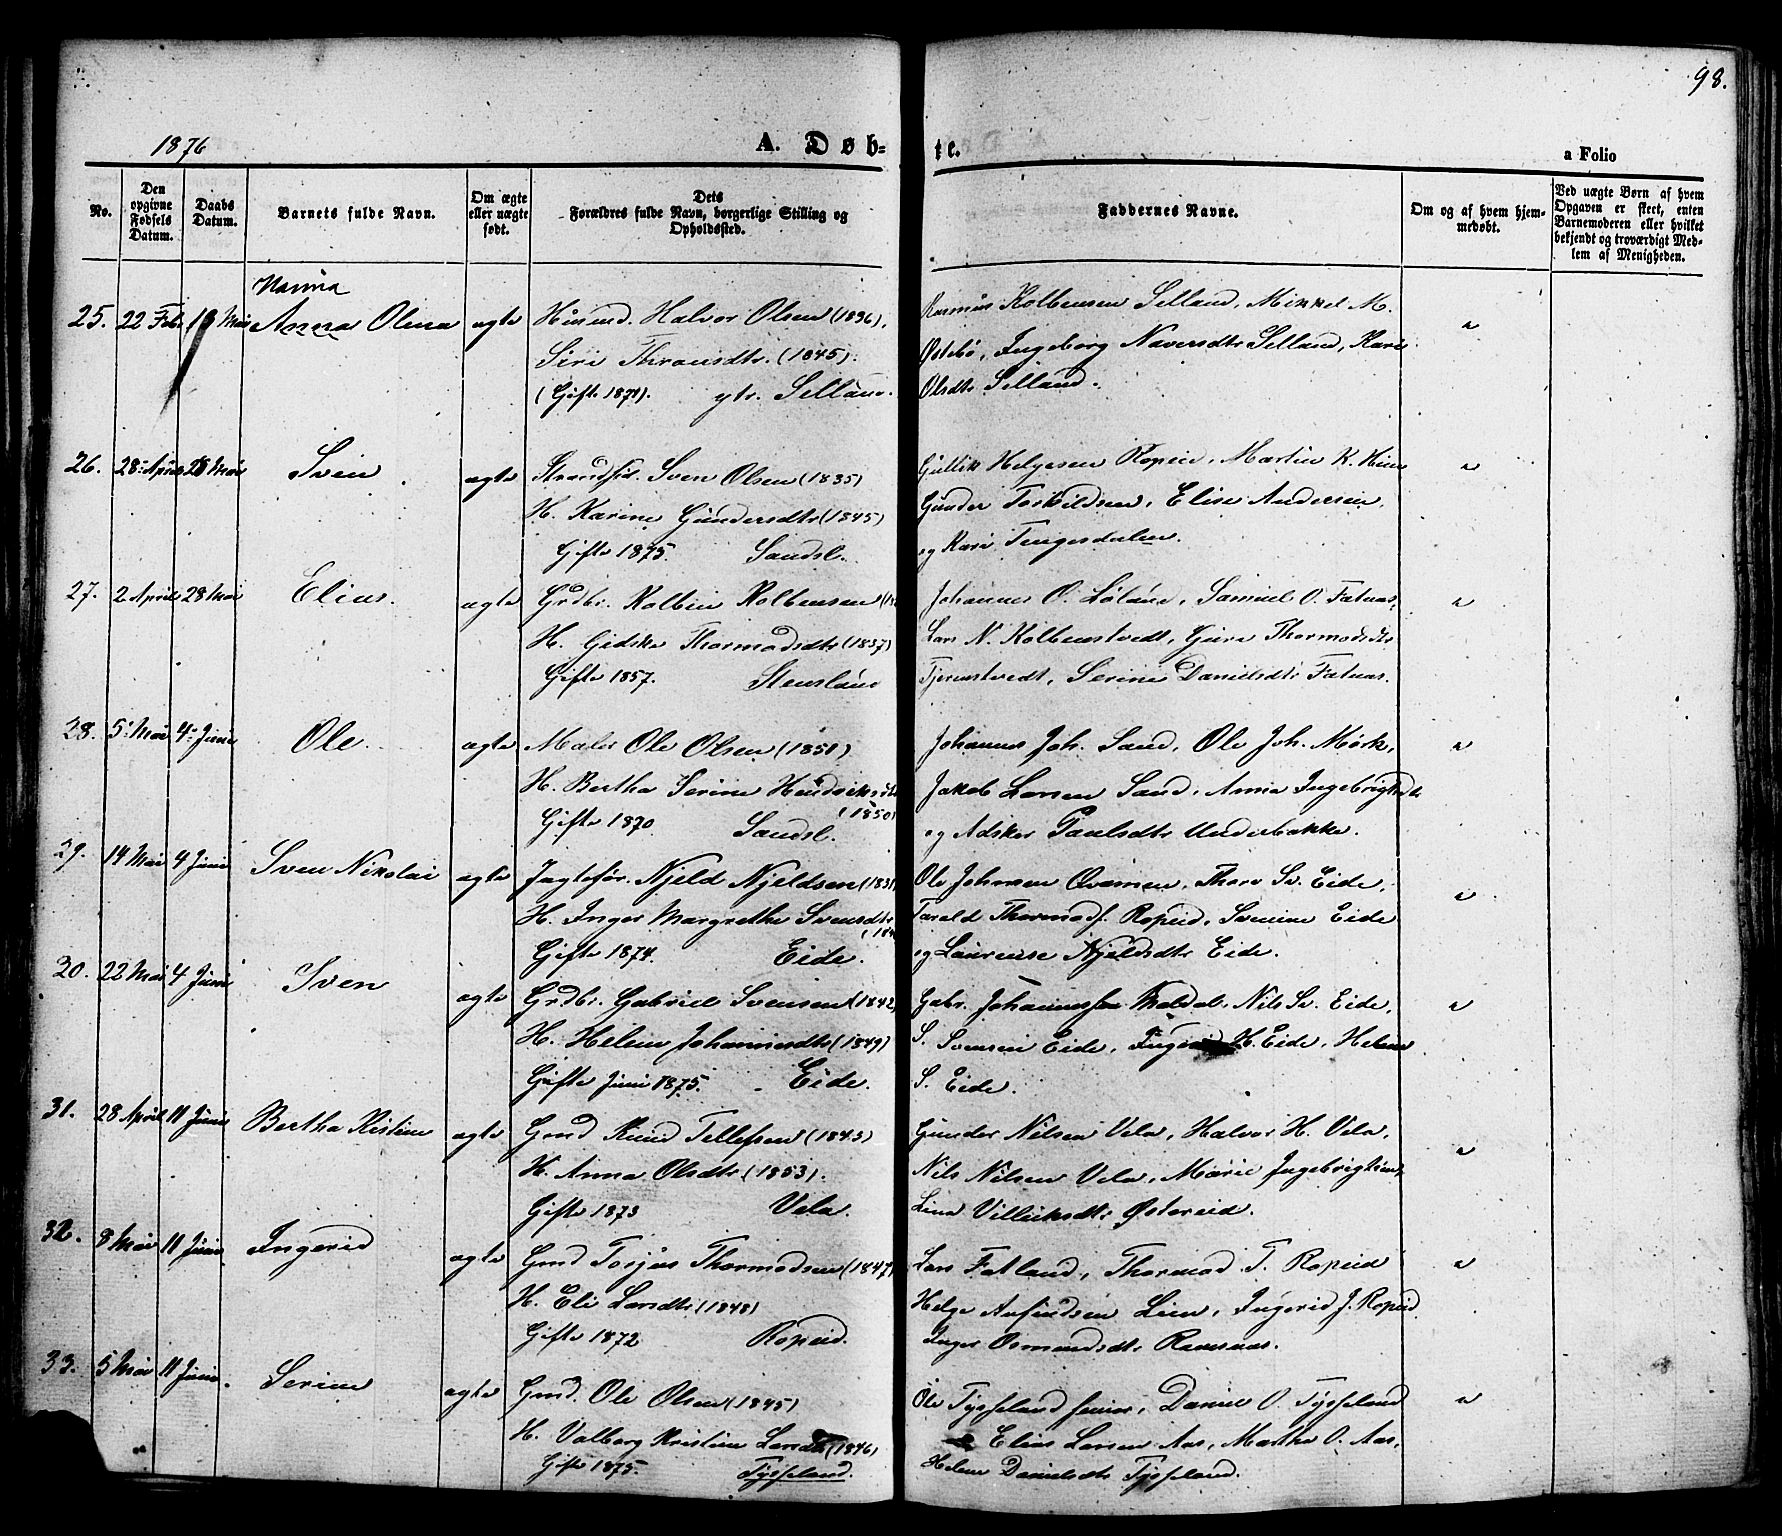 98.
1876
A. Døb-
te.
a Folio
No.
Den opgivne Fødsels Datum.
Daabs Datum.
Barnets fulde Navn.
Om ægte eller uægte født.
Dets Forældres fulde Navn, borgerlige Stilling og Opholdssted.
Faddernes Navne.
Om og af hvem hjemmedøbt.
Ved uægte Børn af hvem Opgaven er skeet, enten Barnemoderen eller hvilket bekjendt og troværdigt Medlem af Menigheden.
Hanna
25. 22 Feb. Mai Anna Olena ægte Husmd. Halvor Olsen (1836).
Siri Thronsdtr. (1845).
(Gifte 1871). ytr. Selland.
Rasmus Kolbensen Selland, Mikkel M.
Østebø, Ingeborg Naversdtr Selland, Kari
Olsdtr Selland.
26. 28 April 28 Mai Sven ægte Strandsid. Sven Olsen (1835)
H. Karine Gundersdtr (1845)
Gifte 1875. Sandsl.
Gullik Helgesen Ropeid, Martin K. Hiim
Gunder Torkildsen, Elise Andersen,
og Kari Tengesdalen.
27. 2 April 28 Mai Elias. ægte Grdbr. Kolben Kolbensen
H. Gidske Thormodsdtr (1837)
Gifte 1857. Stensland
Johannes O. Løland, Samuel O. Fatnæs,
Lars N. Kolbenstvedt, Guri Thormodsdtr
Tjerenstvedt, Serine Danielsdtr Fatnæs.
28. 5 Mai 4 Juni Ole. ægte Maler Ole Olsen (1851)
H. Bertha Serine Hendriksdtr
(1850)
Gifte 1870. Sandsl.
Johannes Joh. Sand, Ole Joh. Mørk,
Jakob Larsen Sand, Anna Ingebrigtsdtr
og Adsker Paulsdtr Underbakke.
29. 14 Mai 4 Juni Sven Nikolai ægte Jagtefør. Njeld Njeldsen
H. Inger Margrethe Svensdtr
Gifte 1874. Eide.
Ole Johnsen Qvamen, Thore Sv. Eide,
Tarald Thormods. Ropeid, Svenine Eide
og Laurense Njeldsdtr Eide.
30. 22 Mai 4 Juni Sven ægte Grdbr. Gabriel Svensen (1842)
H. Helene Johannesdtr (1849)
Gifte Juni 1875. Eide.
Gabr. Johannessen Meldal, Nils Sv. Eide,
S. Svensen Eide, H. Eide, Helene
S. Eide.
31. 28 April 11 Juni Bertha Kristine ægte Gmd Knud Tellefsen (1843)
H. Anna Olsdtr (1853).
Gifte 1873 Vela.
Gunder Nilsen Vela, Halvor H. Vela,
Nils Nilsen Vela, Marie Ingebrigtsen,
Lina Villiksdtr Østereid.
32. 8 Mai 11 Juni Ingerid ægte Gmd Torjus Thormodsen (1847)
H. Eli Larsdtr (1848)
Gifte 1872 Ropeid.
Lars Fatland, Thormod T. Ropeid
Helge Anfindsen Lien, Ingerid J. Ropeid
Inger Osmundsdtr Ramsnæs.
33. 5 Mai 11 Juni. Serine ægte Gmd. Ole Olsen (1845)
H. Valborg Kristine Larsdtr (1846)
Gifte 1875. Tysseland.
Ole Tysseland senior, Daniel O. Tysseland
Elias Larsen Aas, Martha O. Aas,
Helene Danielsdtr Tysseland.